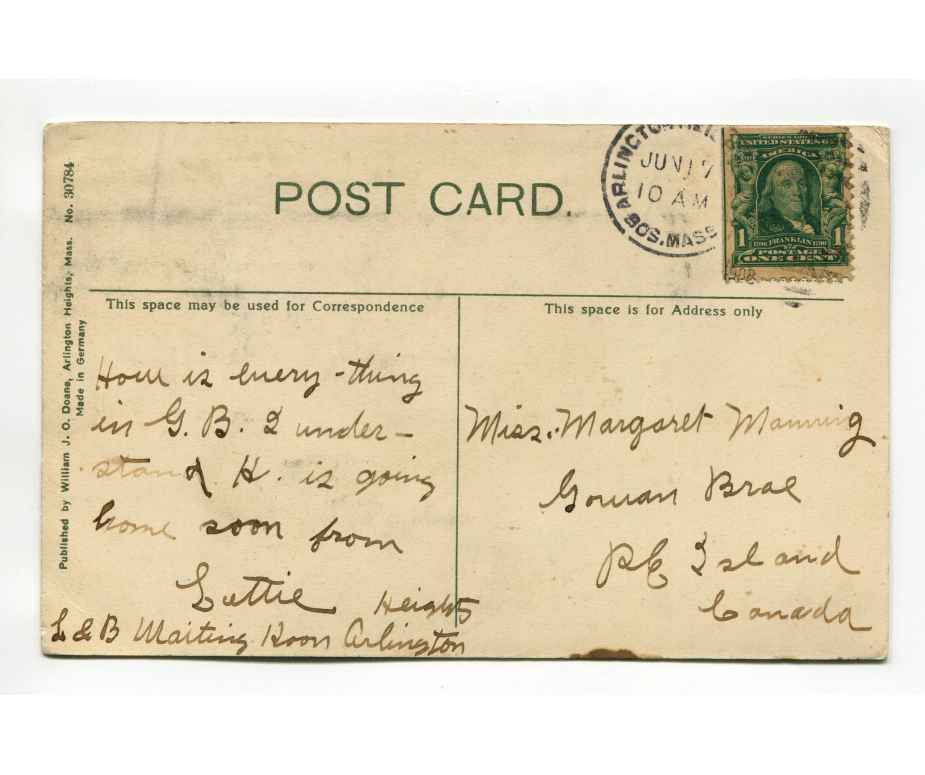 POST CARD.
ARLINGTON
JUN 17
10 AM
BOS. MASS
UNITED STATES OF
AMERICA
1 FRANKLIN 1
POSTAGE
ONE CENT
Published by William J. O. Doane, Arlington Heights, Mass. No. 30784
Made in Germany
This space may be used for Correspondence
How is every-thing
in G. B. I under-
stand H. is going
home soon from
Lettie
Heights
L & B Waiting Room Arlington
This space is for Address only
Miss. Margaret Manning
Gowan Brae
P E Island
Canada